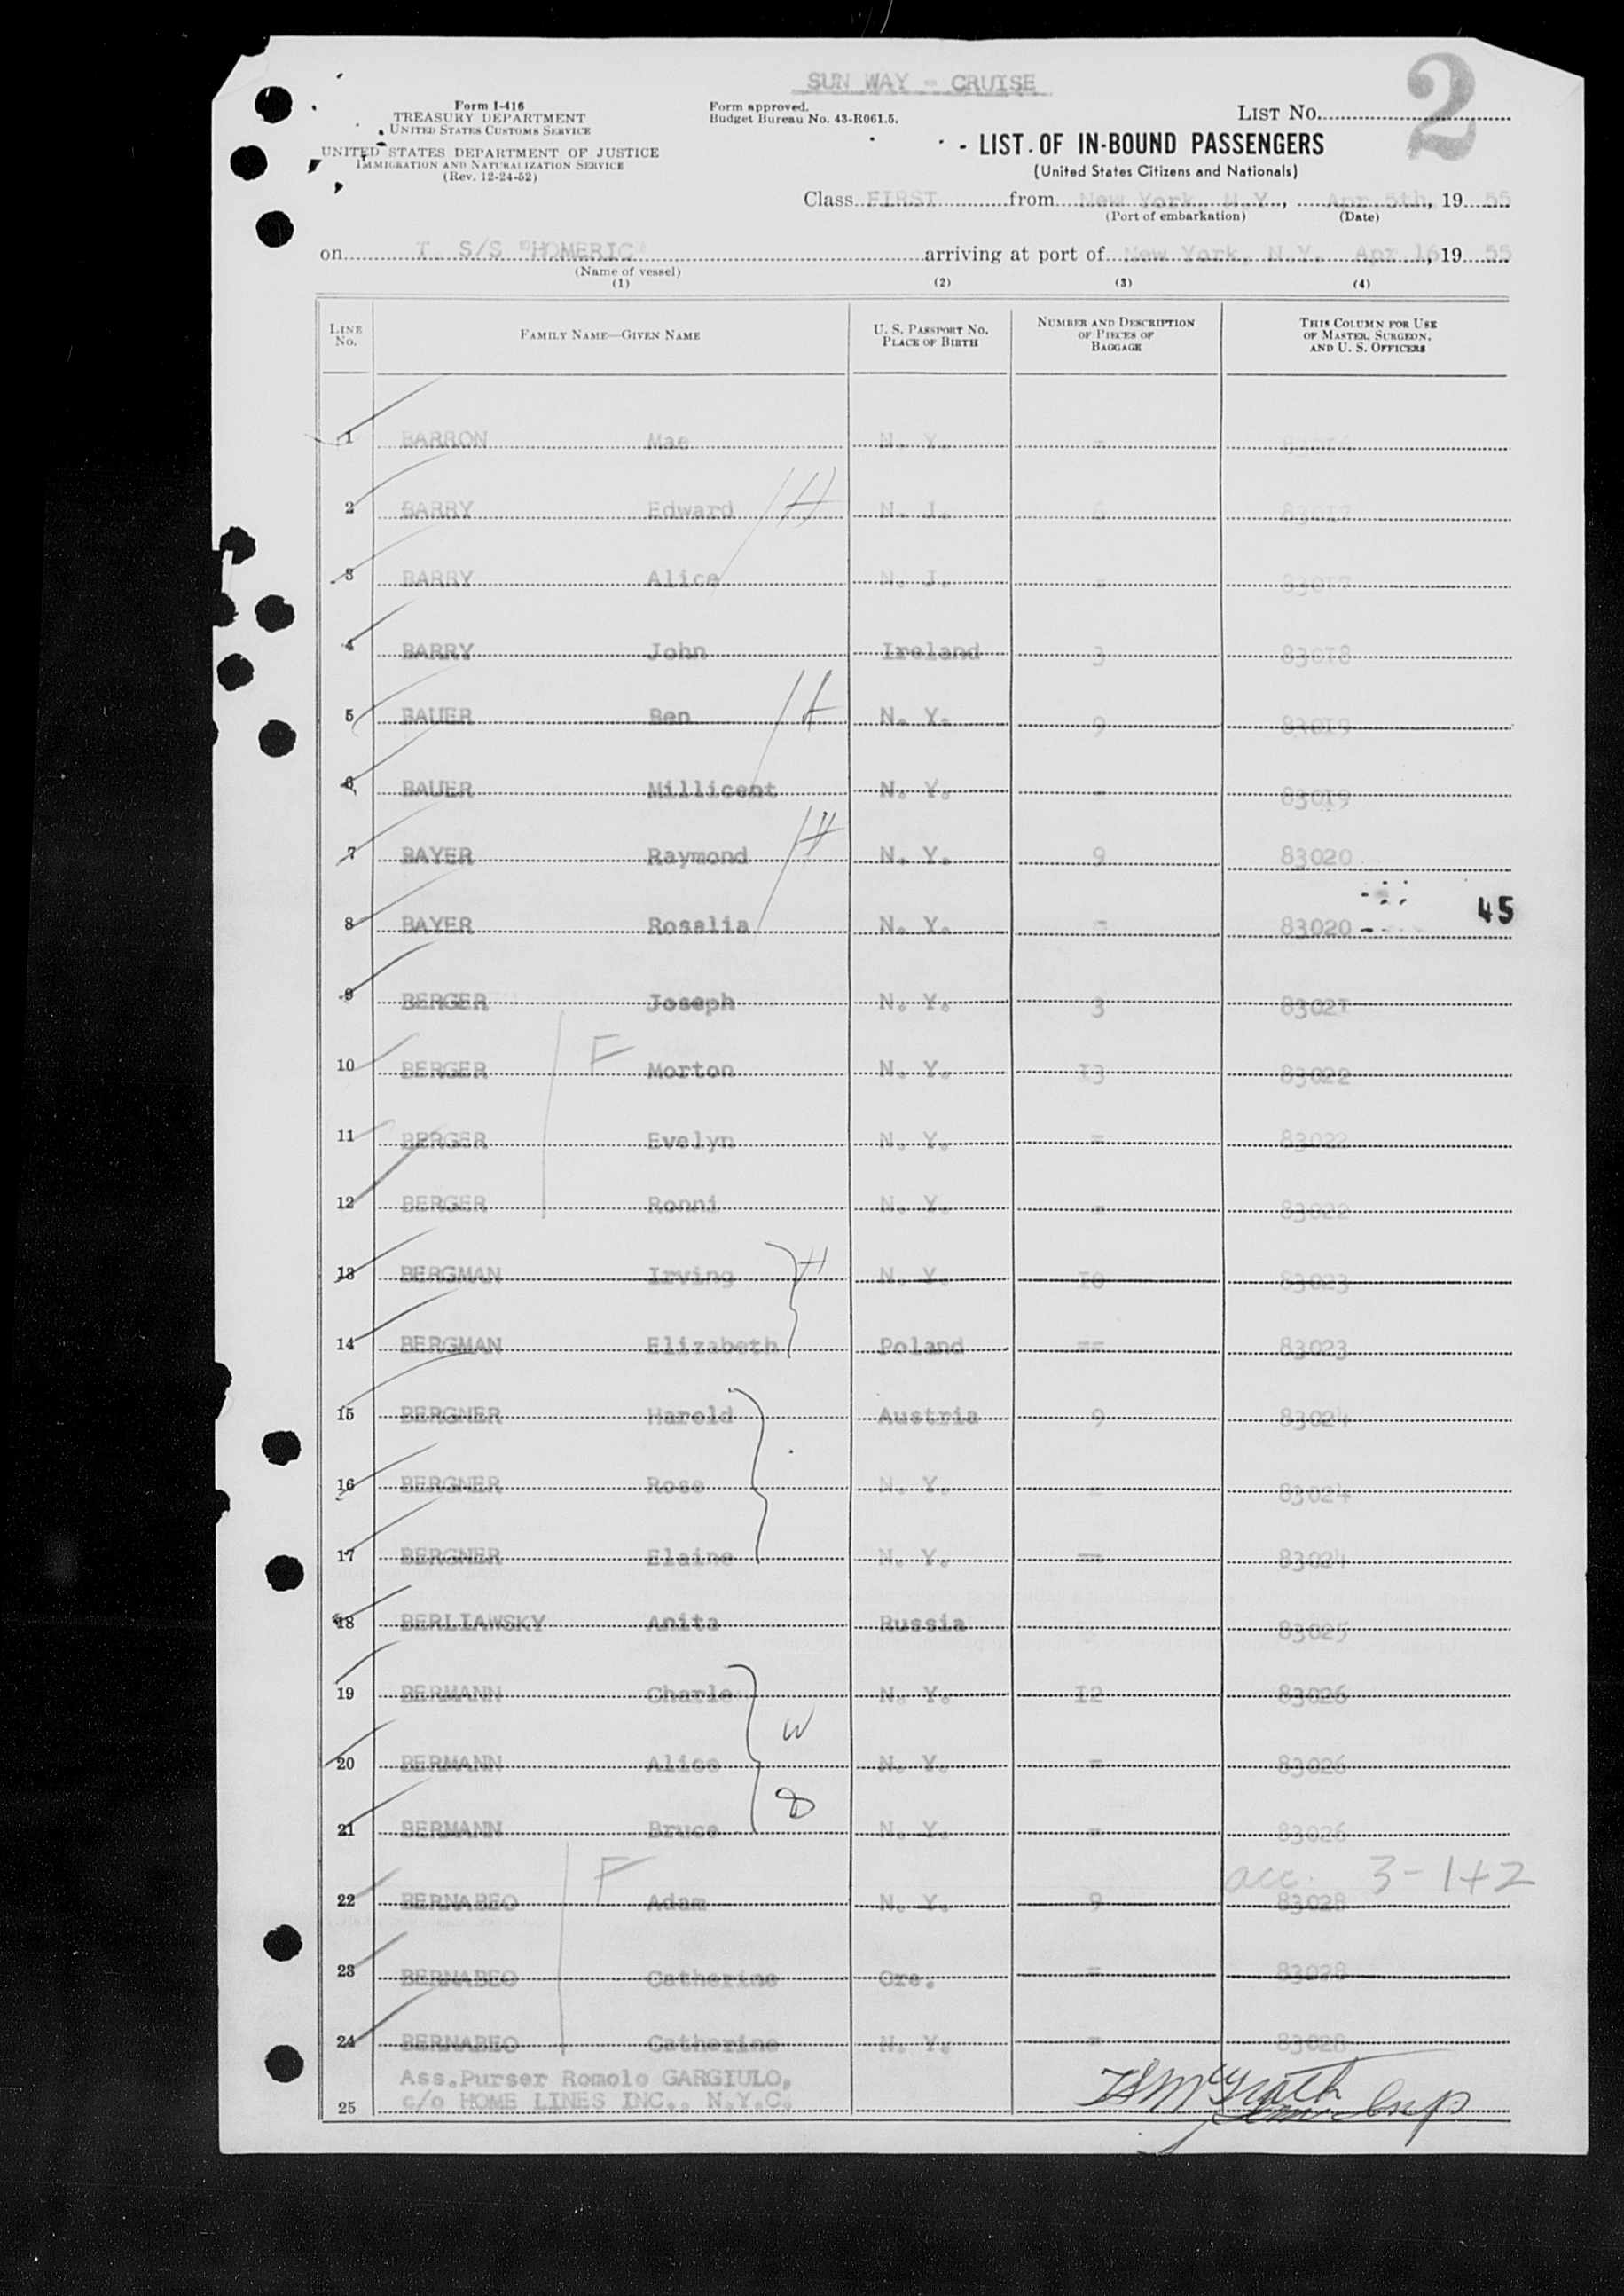 SUN WAY - CRUISE
2
Form I-416
TREASURY DEPARTMENT
UNITED STATES CUSTOMS SERVICE
UNITED STATES DEPARTMENT OF JUSTICE
IMMIGRATION AND NATURALIZATION SERVICE
(Rev. 12-24-52)
Form approved.
Budget Bureau No. 43-R061.5.
LIST NO.
LIST OF IN-BOUND PASSENGERS
(United States Citizens and Nationals)
Class FIRST from New York, N.Y., Apr.5th, 19 55
(Port of embarkation) (Date)
on T. S/S "HOMERIC" arriving at port of New York, N.Y. Apr.16, 19 55
(Name of vessel)
(1) (2) (3) (4)
LINE NO. FAMILY NAME—GIVEN NAME U. S. PASSPORT NO. PLACE OF BIRTH NUMBER AND DESCRIPTION OF PIECES OF BAGGAGE THIS COLUMN FOR USE OF MASTER, SURGEON, AND U. S. OFFICERS
1 BARRON Mae N. Y. - 83016
2 BARRY Edward H N. J. 6 83017
3 BARRY Alice N. J. - 83017
4 BARRY John Ireland 3 83018
5 BAUER Ben H N. Y. 9 83019
6 BAUER Millicent N. Y. - 83019
7 BAYER Raymond H N. Y. 9 83020
8 BAYER Rosalia N. Y. - 83020 45
9 BERGER Joseph N. Y. 3 83021
10 BERGER F Morton N. Y. 13 83022
11 BERGER Evelyn N. Y. - 83022
12 BERGER Ronni N. Y. - 83022
13 BERGMAN Irving H N. Y. 10 83023
14 BERGMAN Elizabeth Poland -- 83023
15 BERGNER Harold Austria 9 83024
16 BERGNER Rose N. Y. - 83024
17 BERGNER Elaine N. Y. -- 83024
18 BERLIAWSKY Anita Russia 83025
19 BERMANN Charle N. Y. 12 83026
W
20 BERMANN Alice N. Y. - 83026
21 BERMANN Bruce N. Y. - 83026
acc. 3-1+2
22 BERNABEO F Adam N. Y. 9 83028
23 BERNABEO Catherine Ore. - 83028
24 BERNABEO Catherine N. Y. - 83028
Ass.Purser Romolo GARGIULO,
25 c/o HOME LINES INC., N.Y.C.